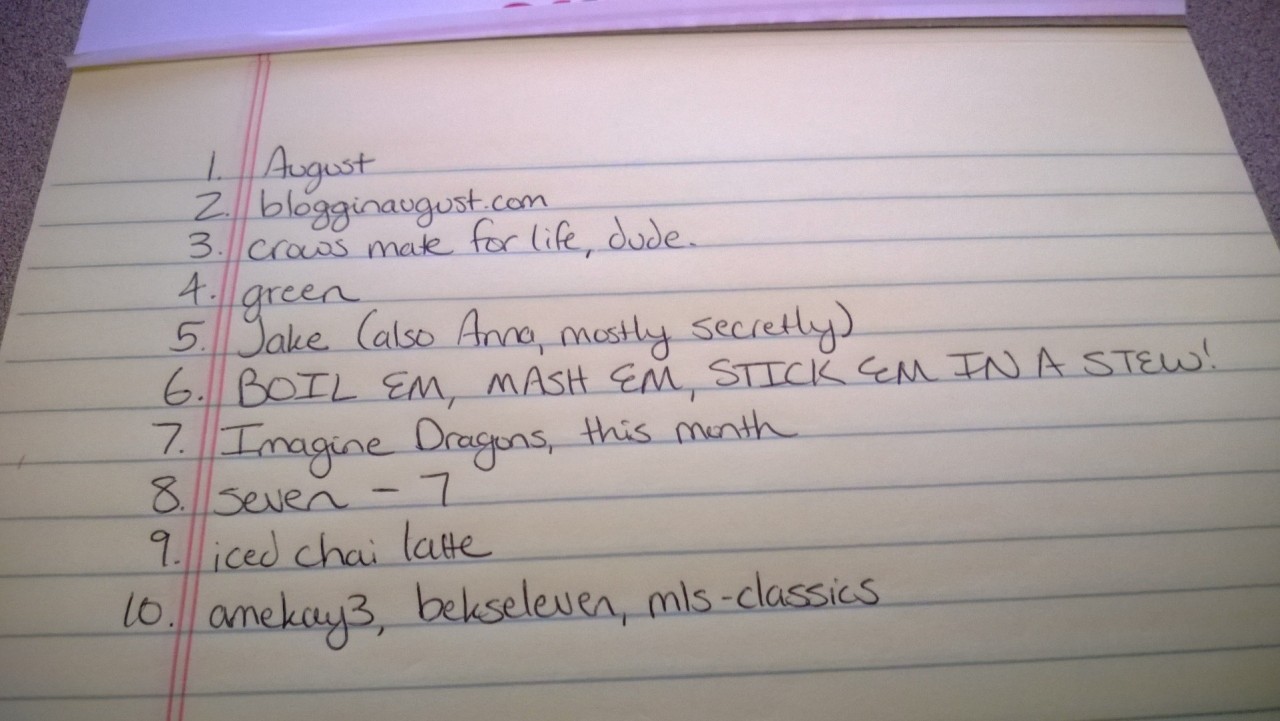 1. August
2. blogginaugust.com
3. crows mate for life, dude.
4. green
5. Jake (also Anna, mostly secretly)
6. BOIL EM, MASH EM, STICK EM IN A STEW!
7. Imagine Dragons, this month
8. seven - 7
9. iced chai latte
10. amekay3, bekseleven, mls-classics